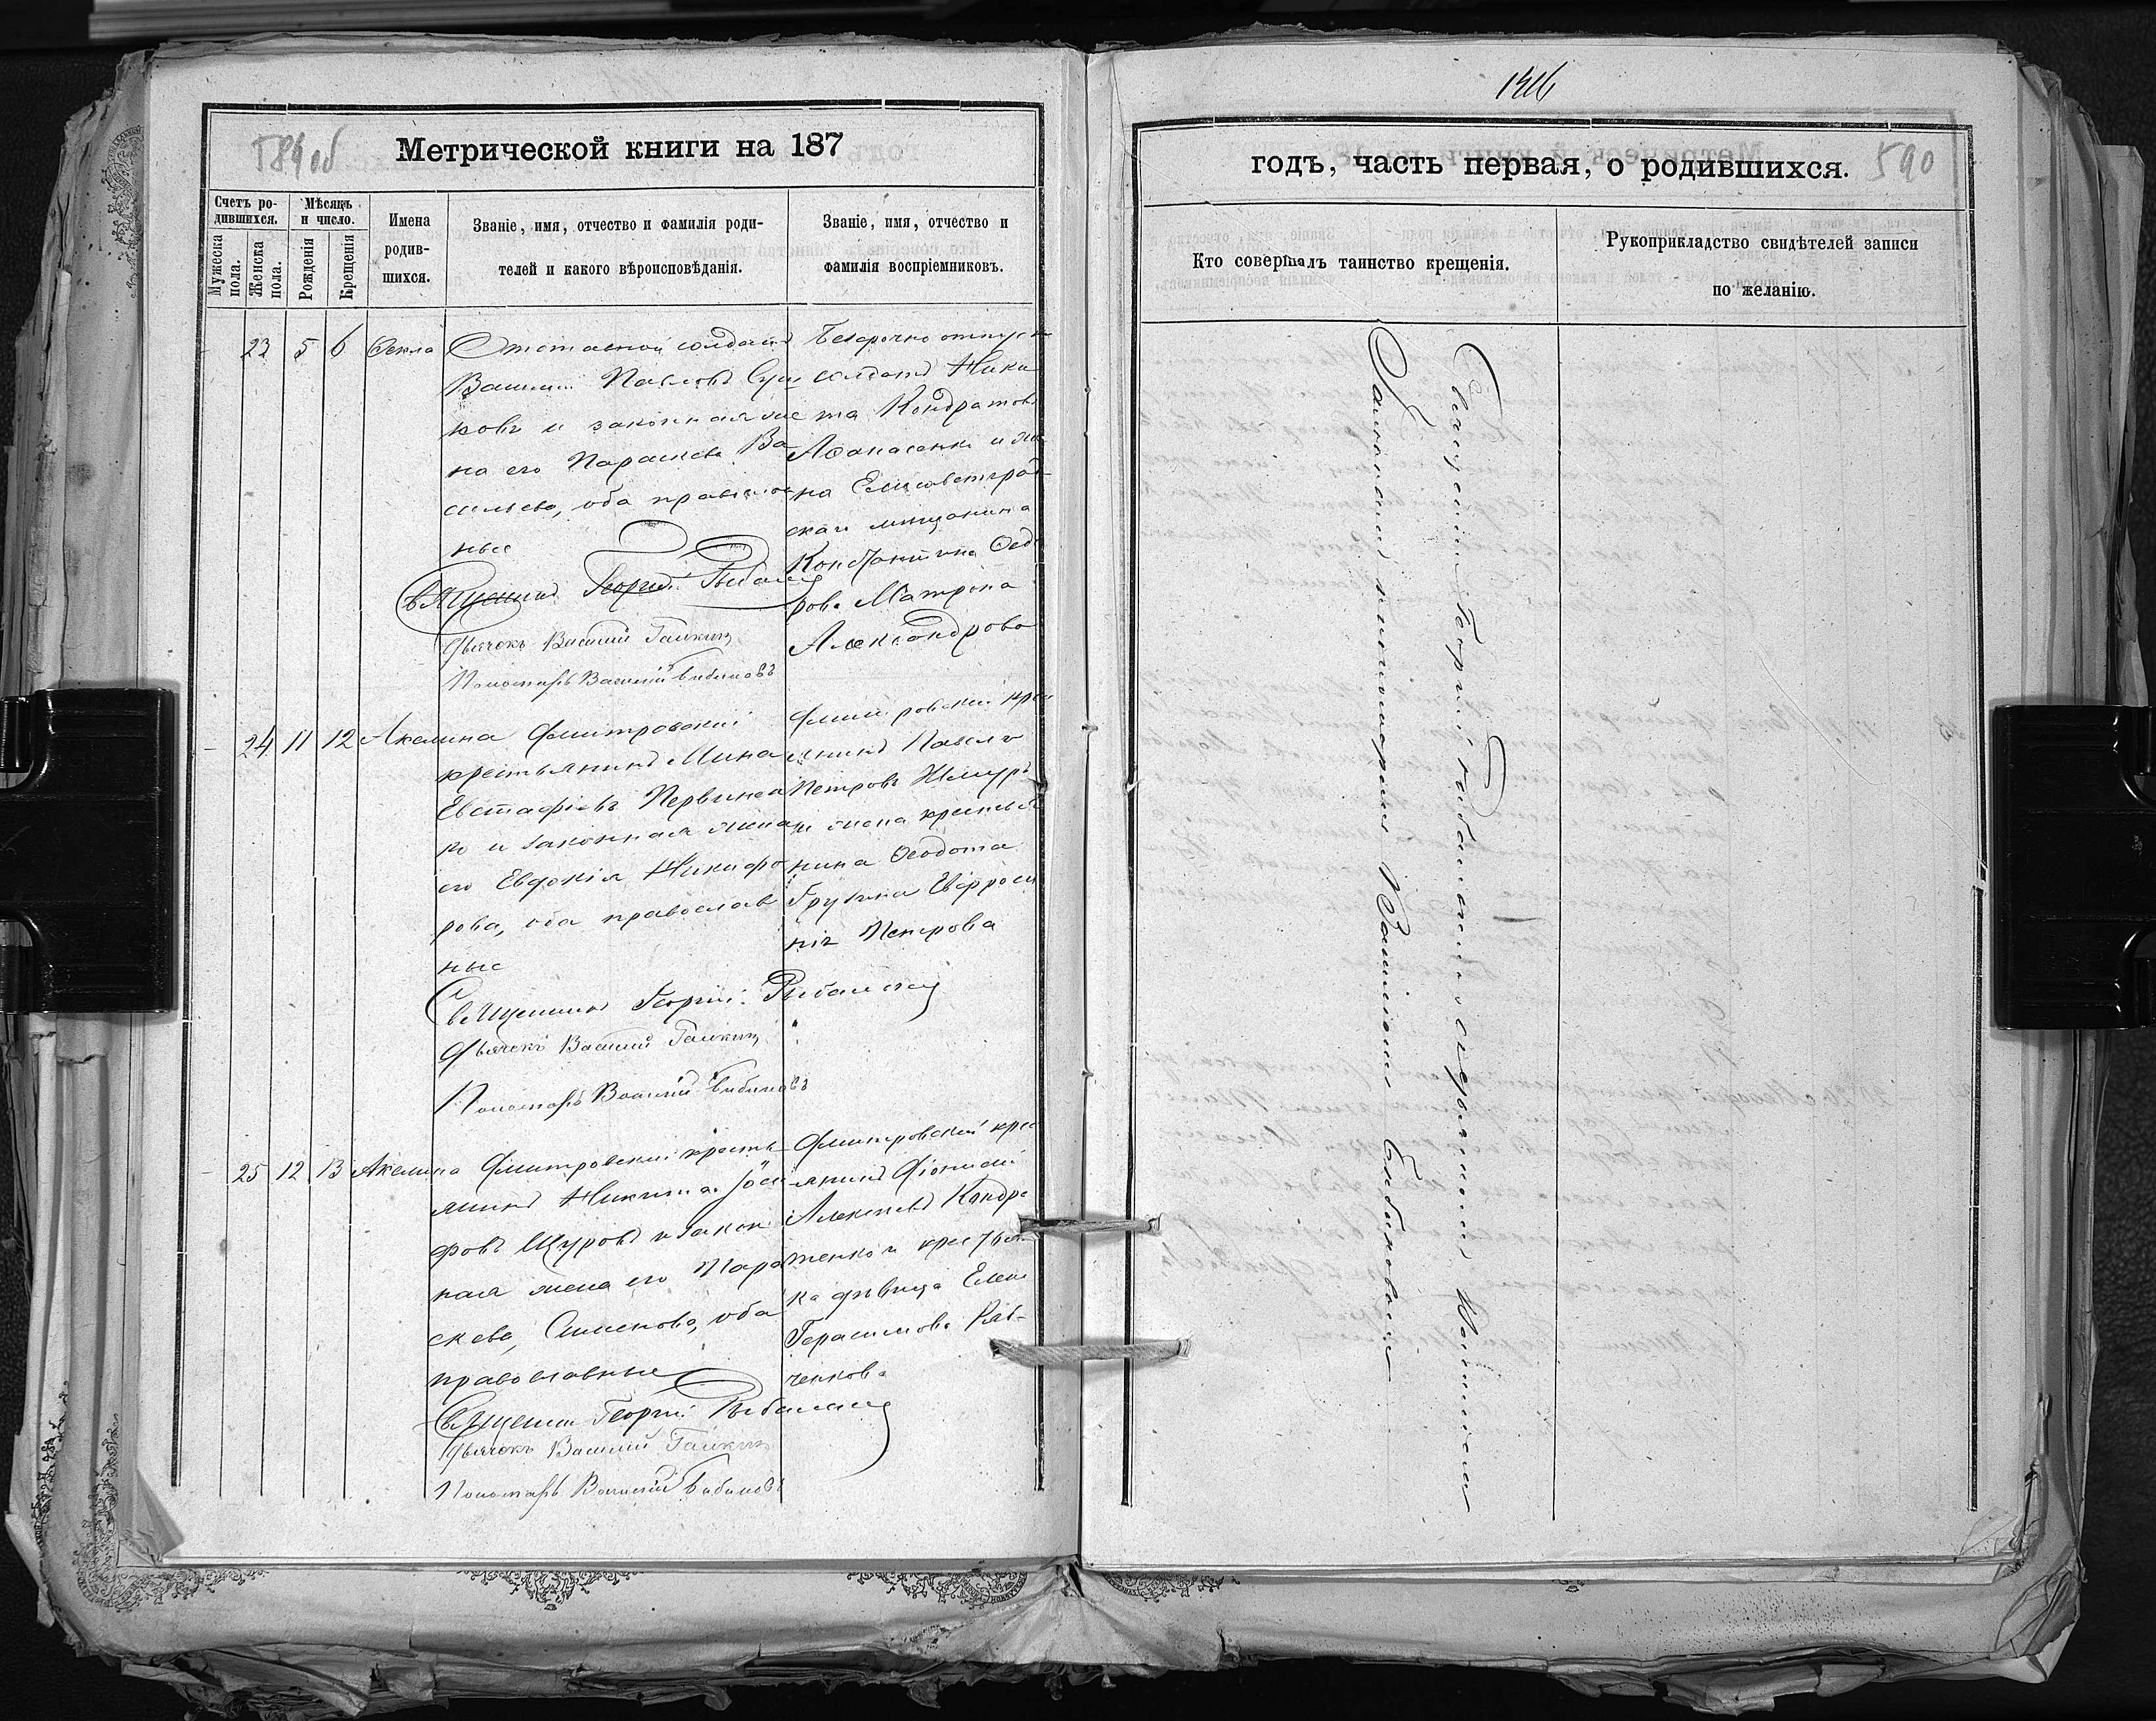 589 об
Метрической книги на 187
Счетъ ро-
дившихся.
Мужеска
пола.
Женска
пола.
Мѣсяцъ
и число.
Рожденія
Крещенія
Имена
родив-
шихся.
Званіе, имя, отчество и фамилія роди-
телей и какого вѣроисповѣданія.
Званіе, имя, отчество и
фамилія воспріемниковъ.
23 5 6 Ѳекла
Отставной солдатъ
Василій Павловъ
ковъ и законная же
на его Параскева Ва
сильева, оба православ
ные
Священникъ Георгій
Дьячокъ Василій
Пономарь Василій Бибиковъ
Безсрочно отпуск
солдатъ Ники
та Кондратов
Аѳанасенко и же
на Елисаветград
скаго мещанина
Константина Ѳед
рова Матрона
Александрова
24 11 12 Акелина
Дмитровскій
крестьянинъ Мина
Евстафіевъ
ко и законная жена
его Евдокія Никифо
рова, оба православ
ные
Священникъ Георгій
Дьячекъ Василій
Пономарь Василій Бибиковъ
Дмитровскій крес
янинъ Павелъ
Петровъ
и жена крестья
нина Ѳеодота
Евфроси
нія Петрова
25 12 13 Акелина
Дмитровскій кресть
янинъ Никита Іоси
фовъ Щуровъ и закон
ная жена его Пара
скева Сименова, оба
православные
Священникъ Георгій
Дьячокъ Василій
Пономарь Василій Бибиковъ
Дмитровскій крес
янинъ Діонисій
Алексѣевъ Кондра
тенко и крестьян
ка дѣвица Елен
Герасимова
ченкова
590
годъ, часть первая, о родившихся.
Кто совершалъ таинство крещенія.
Рукоприкладство свидѣтелей записи
по желанію.
Священникъ Георгій
съ пономаремъ Василіемъ Бибиковымъ